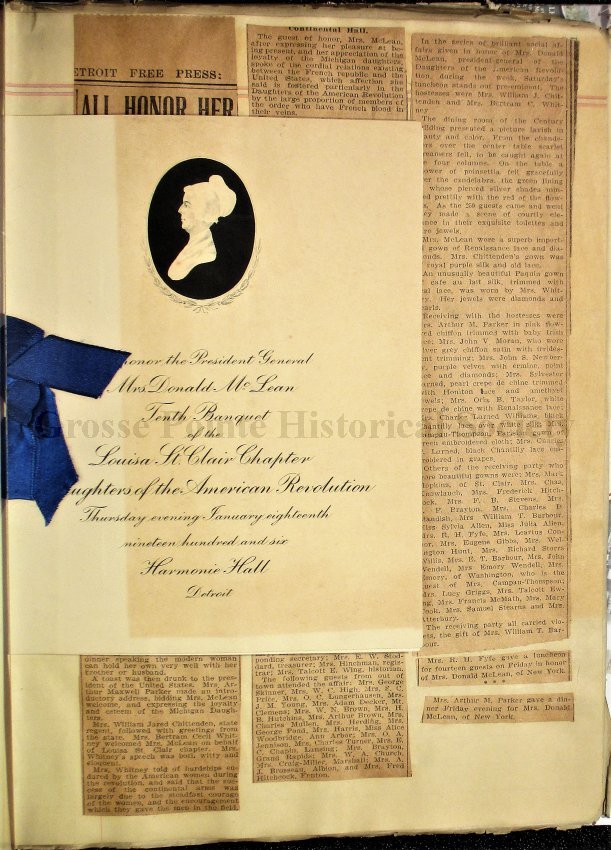 DETROIT FREE PRESS:
ALL HONOR HER
Continental Hall.
The guest of honor, Mrs. McLean,
after expressing her pleasure at be-
ing present, and her appreciation of the
loyalty of the Michigan daughters,
spoke of the cordial relations existing
between the French republic and the
United States, which affection she
said is fostered particularly in the
Daughters of the American Revolution
by the large proportion of members of
the order who have French blood in
their veins.
honor the President General
Mrs Donald McLean
Tenth Banquet
of the
Louisa St. Clair Chapter
Daughters of the American Revolution
Thursday evening January eighteenth
nineteen hundred and six
Harmonie Hall
Detroit
Grosse Pointe Historical
speaking the modern woman
can hold her own very well with her
brother or husband.
A toast was then drunk to the pres-
ident of the United States. Mrs. Ar-
thur Maxwell Parker made an intro-
ductory address, bidding Mrs. McLean
welcome, and expressing the loyalty
and esteem of the Michigan Daugh-
ters.
Mrs. William Jared Chittenden, state
regent, followed with greetings from
the state. Mrs. Bertram Cecil Whit-
ney welcomed Mrs. McLean on behalf
of Louisa St. Clair chapter. Mrs.
Whitney's speech was both witty and
eloquent.
Mrs. Whitney told of hardships en-
dured by the American women during
the revolution, and said that the suc-
cess of the continental arms was
largely due to the steadfast courage
of the women, and the encouragement
which they gave the men in the field.
ponding secretary; Mrs. E. W. Stod-
dard, treasurer; Mrs. Hinchman, regis-
trar; Mrs. Talcott E. Wing, historian.
The following guests from out of
town attended the affair: Mrs. George
Skinner, Mrs. W. C. High, Mrs. S. C.
J. M. Young, Mrs. Adam
Clemens; Mrs. W. E. Brown, Mrs. H.
B. Hutchins, Mrs. Arthur Brown, Mrs.
Charles Mullen, Mrs. Herdling, Mrs.
George Pond, Mrs. Harris, Miss Alice
Woodbridge, Ann Arbor; Mrs. O. A.
Jennison, Mrs. Charles Turner, Mrs. E.
C. Chapin, Lansing; Mrs. Brayton,
Grand Rapids; Mrs. W. A. Church,
Mrs. Craig-Miller, Marshall; Mrs. A.
J. Albion, and Mrs. Fred
Hitchcock, Fenton.
In the series of brilliant social af-
fairs given in honor of Mrs. Donald
McLean, president-general of the
Daughters of the American Revolu-
tion, during the week, Saturday's
luncheon stands out preeminent. The
hostesses were Mrs. William J. Chit-
tenden and Mrs. Bertram C. Whit-
ney
The dining room of the Century
building presented a picture lavish in
beauty and color. From the chande-
over the center table scarlet
streamers fell, to be caught again at
four columns. On the table a
of poinsettia fell gracefully
over the candelabra, the green lining
whose pierced silver shades min-
prettily with the red of the flow-
As the 250 guests came and went
they made a scene of courtly ele-
gance in their exquisite toilettes and
jewels.
Mrs. McLean wore a superb import-
gown of Renaissance lace and dia-
monds. Mrs. Chittenden's gown was
royal purple silk and old lace.
An unusually beautiful Paquin gown
cafe au lait silk, trimmed with
lace, was worn by Mrs. Whit-
Her jewels were diamonds and
pearls.
Receiving with the hostesses were
Mrs. Arthur M. Parker in pink flow-
chiffon trimmed with baby Irish
lace; Mrs. John V. Moran, who wore
silver grey chiffon satin with irides-
trimming; Mrs. John S. Newber-
purple velvet with ermine, point
lace and diamonds; Mrs. Sylvester
Larned, pearl crepe de chine trimmed
with Honiton lace and amethyst
jewels; Mrs. Otis B. Taylor, white
crepe de chine with Renaissance lace;
Mrs. Charles Larned Williams, black
Campau-Thompson, Parisian gown of
green embroidered cloth; Mrs. Charles
Larned, black Chantilly lace em-
broidered in grapes.
Others of the receiving party who
wore beautiful gowns were: Mrs. Mark
Hopkins, of St. Clair, Mrs. Chas.
Mrs. Frederick Hitch-
cock, Mrs. F. B. Stevens, Mrs.
F. Brayton, Mrs. Charles D.
Standish, Mrs. William T. Barbour,
Miss Sylvia Allen, Miss Julia Allen,
Mrs. R. H. Fyfe, Mrs. Learius Con-
nor, Mrs. Eugene Gibbs, Mrs. Wel-
lington Hunt, Mrs. Richard Storrs
Willis, Mrs. E. T. Barbour, Mrs. John
Wendell, Mrs. Emory Wendell, Mrs.
Emory, of Washington, who is the
guest of Mrs. Campau-Thompson;
Mrs. Lucy Griggs, Mrs. Talcott Ew-
ing, Mrs. Francis McMath, Mrs. Mary
Cook, Mrs. Samuel Stearns and Mrs.
Atterbury.
The receiving party all carried vio-
lets, the gift of Mrs. William T. Bar-
bour.
Mrs. R. H. Fyfe gave a luncheon
for fourteen guests on Friday in honor
of Mrs. Donald McLean, of New York.
* * *
Mrs. Arthur M. Parker gave a din-
ner Friday evening for Mrs. Donald
McLean, of New York.